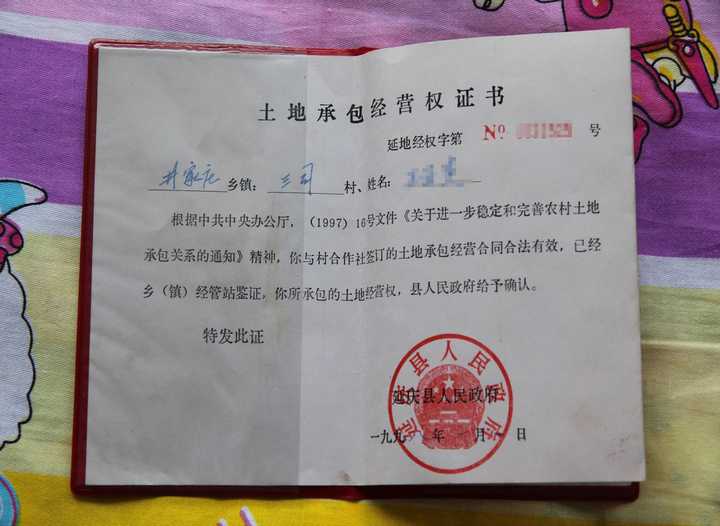 土地承包经营权证书
延地经权字第 Nº 号
井家庄 乡镇： 三司 村、姓名：
根据中共中央办公厅，（1997）16号文件《关于进一步稳定和完善农村土地
承包关系的通知》精神，你与村合作社签订的土地承包经营合同合法有效，已经
乡（镇）经管站鉴证，你所承包的土地经营权，县人民政府给予确认。
特发此证
延庆县人民政府
延庆县人民政府
一九九 年 月 日